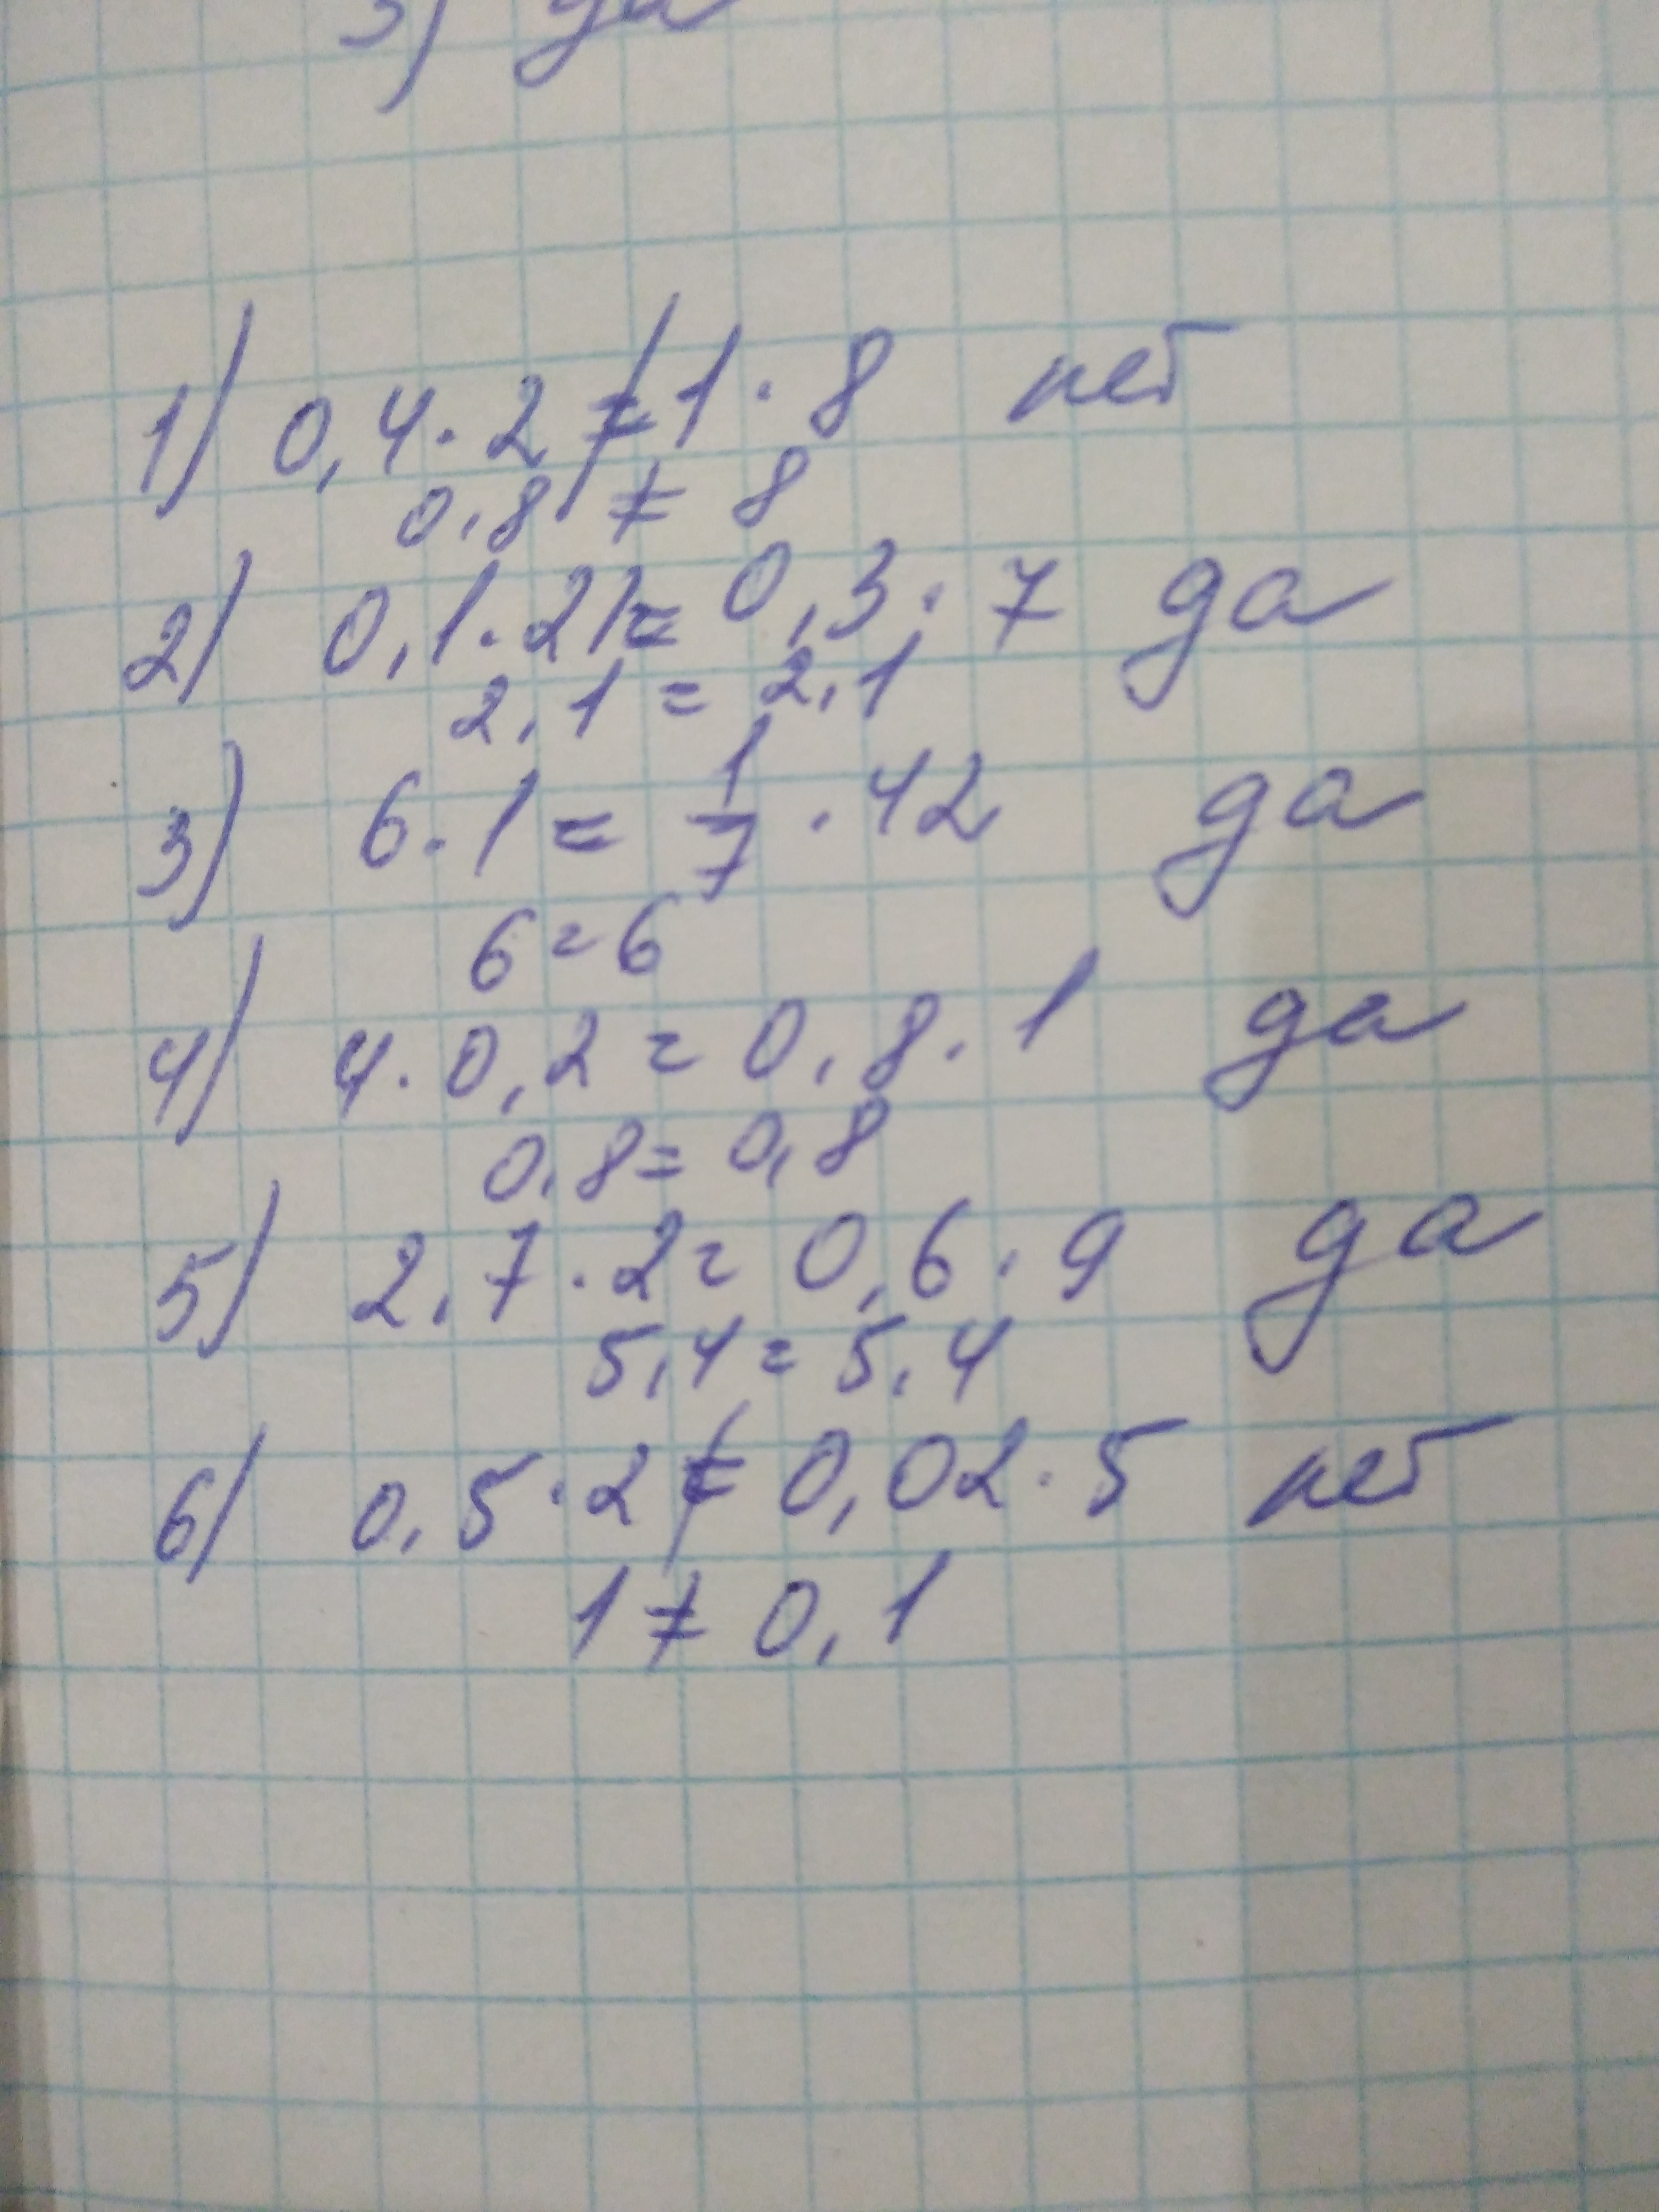 3) да
1) 0,4 · 2 ≠ 1 · 8 нет
0,8 ≠ 8
2) 0,1 · 21 = 0,3 · 7 да
2,1 = 2,1
3) 6 · 1 = 1/7 · 42 да
6 = 6
4) 4 · 0,2 = 0,8 · 1 да
0,8 = 0,8
5) 2,7 · 2 = 0,6 · 9 да
5,4 = 5,4
6) 0,5 · 2 ≠ 0,02 · 5 нет
1 ≠ 0,1